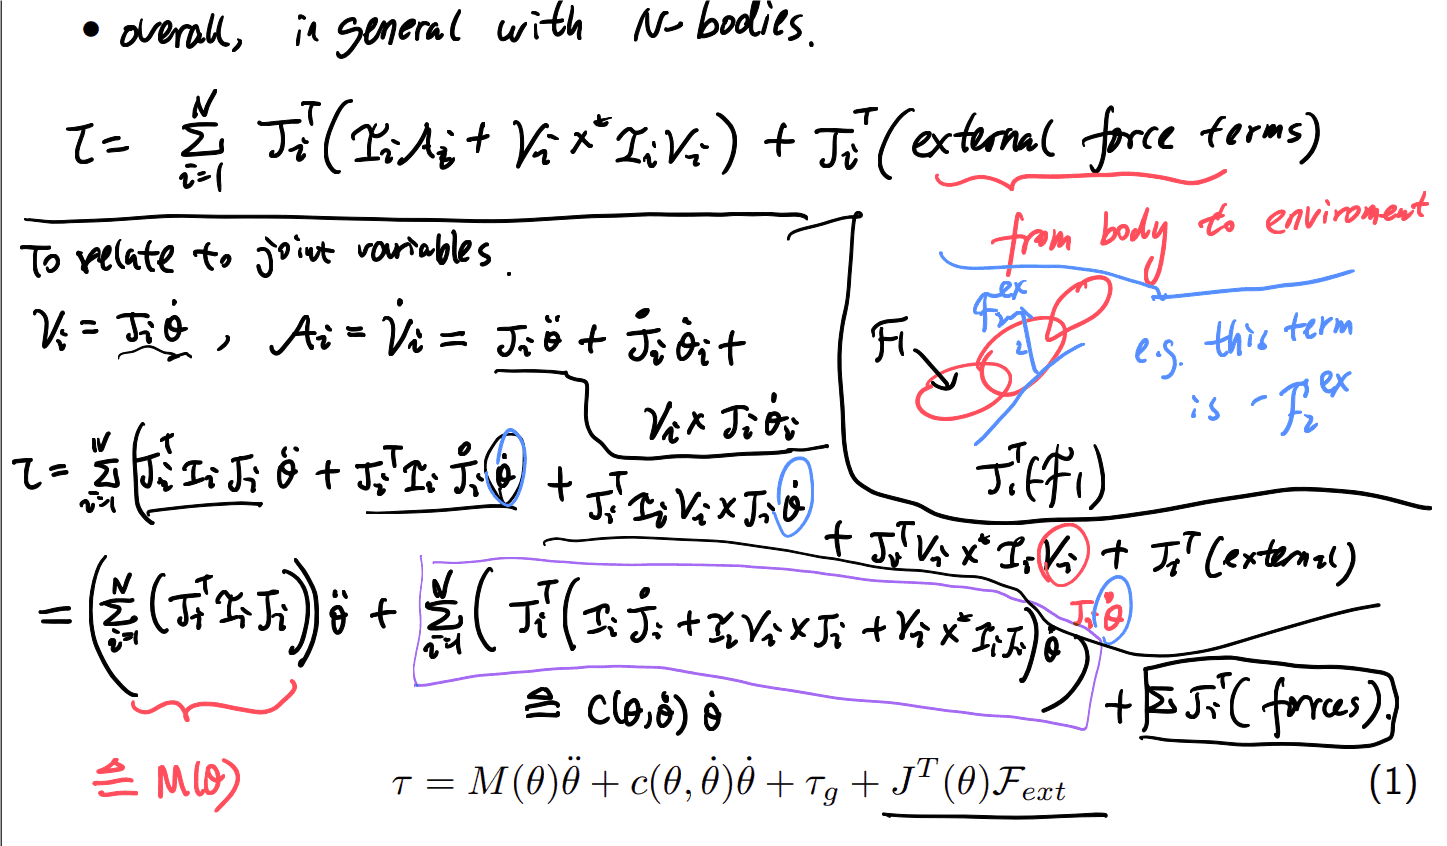 • overall, in general with N-bodies.
τ = \sum_{i=1}^{N} J_i^T (I_i A_i + V_i ×^* I_i V_i) + J_i^T (external force terms)
from body to enviroment
To relate to joint variables.
V_i = J_i \dot{θ}, A_i = \dot{V}_i = J_i \ddot{θ} + \mathring{J}_i \dot{θ}_i +
V_i × J_i \dot{θ}_i
F_2^{ex}
2
F1
e.g. this term
is -F_2^{ex}
J_1^T(-F_1)
τ = \sum_{i=1}^{N} (J_i^T I_i J_i \ddot{θ} + J_i^T I_i \mathring{J}_i \dot{θ} + J_i^T I_i V_i × J_i \dot{θ}
+ J_i^T V_i ×^* I_i V_i + J_i^T (external)
J_i \dot{θ}
= (\sum_{i=1}^{N} (J_i^T I_i J_i)) \ddot{θ} + \sum_{i=1}^{N} (J_i^T (I_i \mathring{J}_i + I_i V_i × J_i + V_i ×^* I_i J_i) \dot{θ})
+ Σ J_i^T ( forces).
≜ C(θ,\dot{θ}) \dot{θ}
≜ M(θ)
τ = M(θ)\ddot{θ} + c(θ, \dot{θ})\dot{θ} + τ_g + J^T(θ)F_{ext} (1)